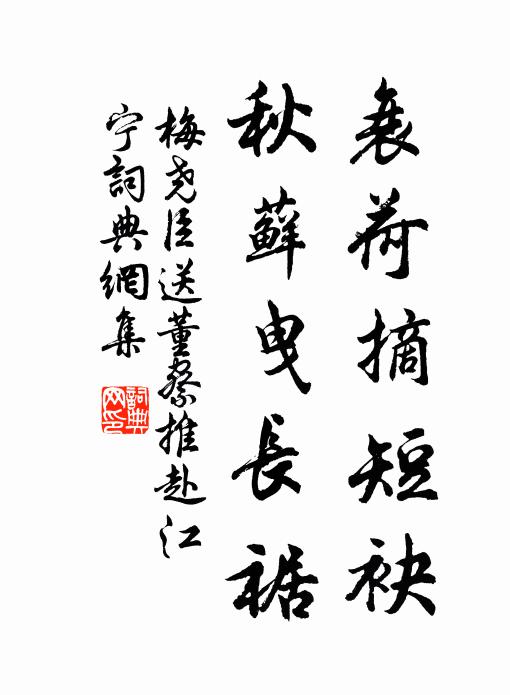 衰荷摘短袂
秋蘚曳長裾
梅尧臣送董蔡推赴江
宁詞典網集
詞典网印